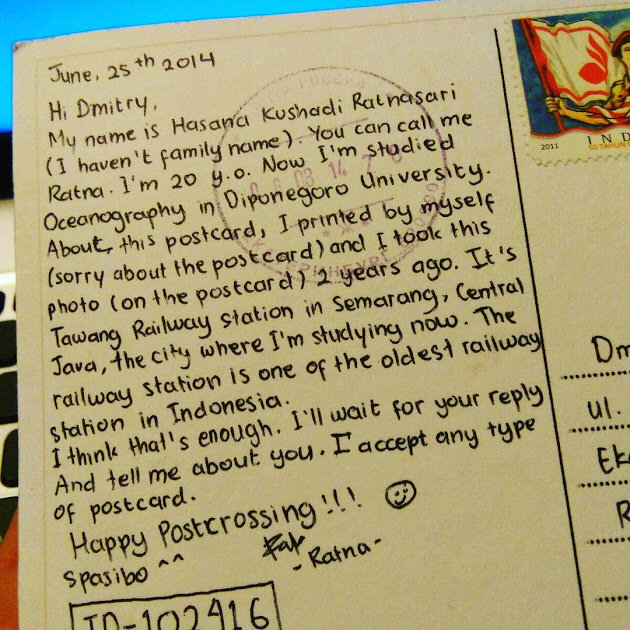 June, 25th 2014
Hi Dmitry,
My name is Hasana Kushadi Ratnasari
(I haven't family name). You can call me
Ratna. I'm 20 y.o. Now I'm studied
Oceanography in Diponegoro University.
About, this postcard, I printed by myself
(sorry about the postcard) and I took this
photo (on the postcard) 2 years ago. It's
Tawang Railway station in Semarang, Central
Java, the city where I'm studying now. The
railway station is one of the oldest railway
station in Indonesia.
I think that's enough. I'll wait for your reply
And tell me about you. I accept any type
of postcard.
Happy Postcrossing!!! ☺
Spasibo ^^
-Ratna-
ID-102416
2011
IND
50 TAHUN
Dm
ul.
Eka
R